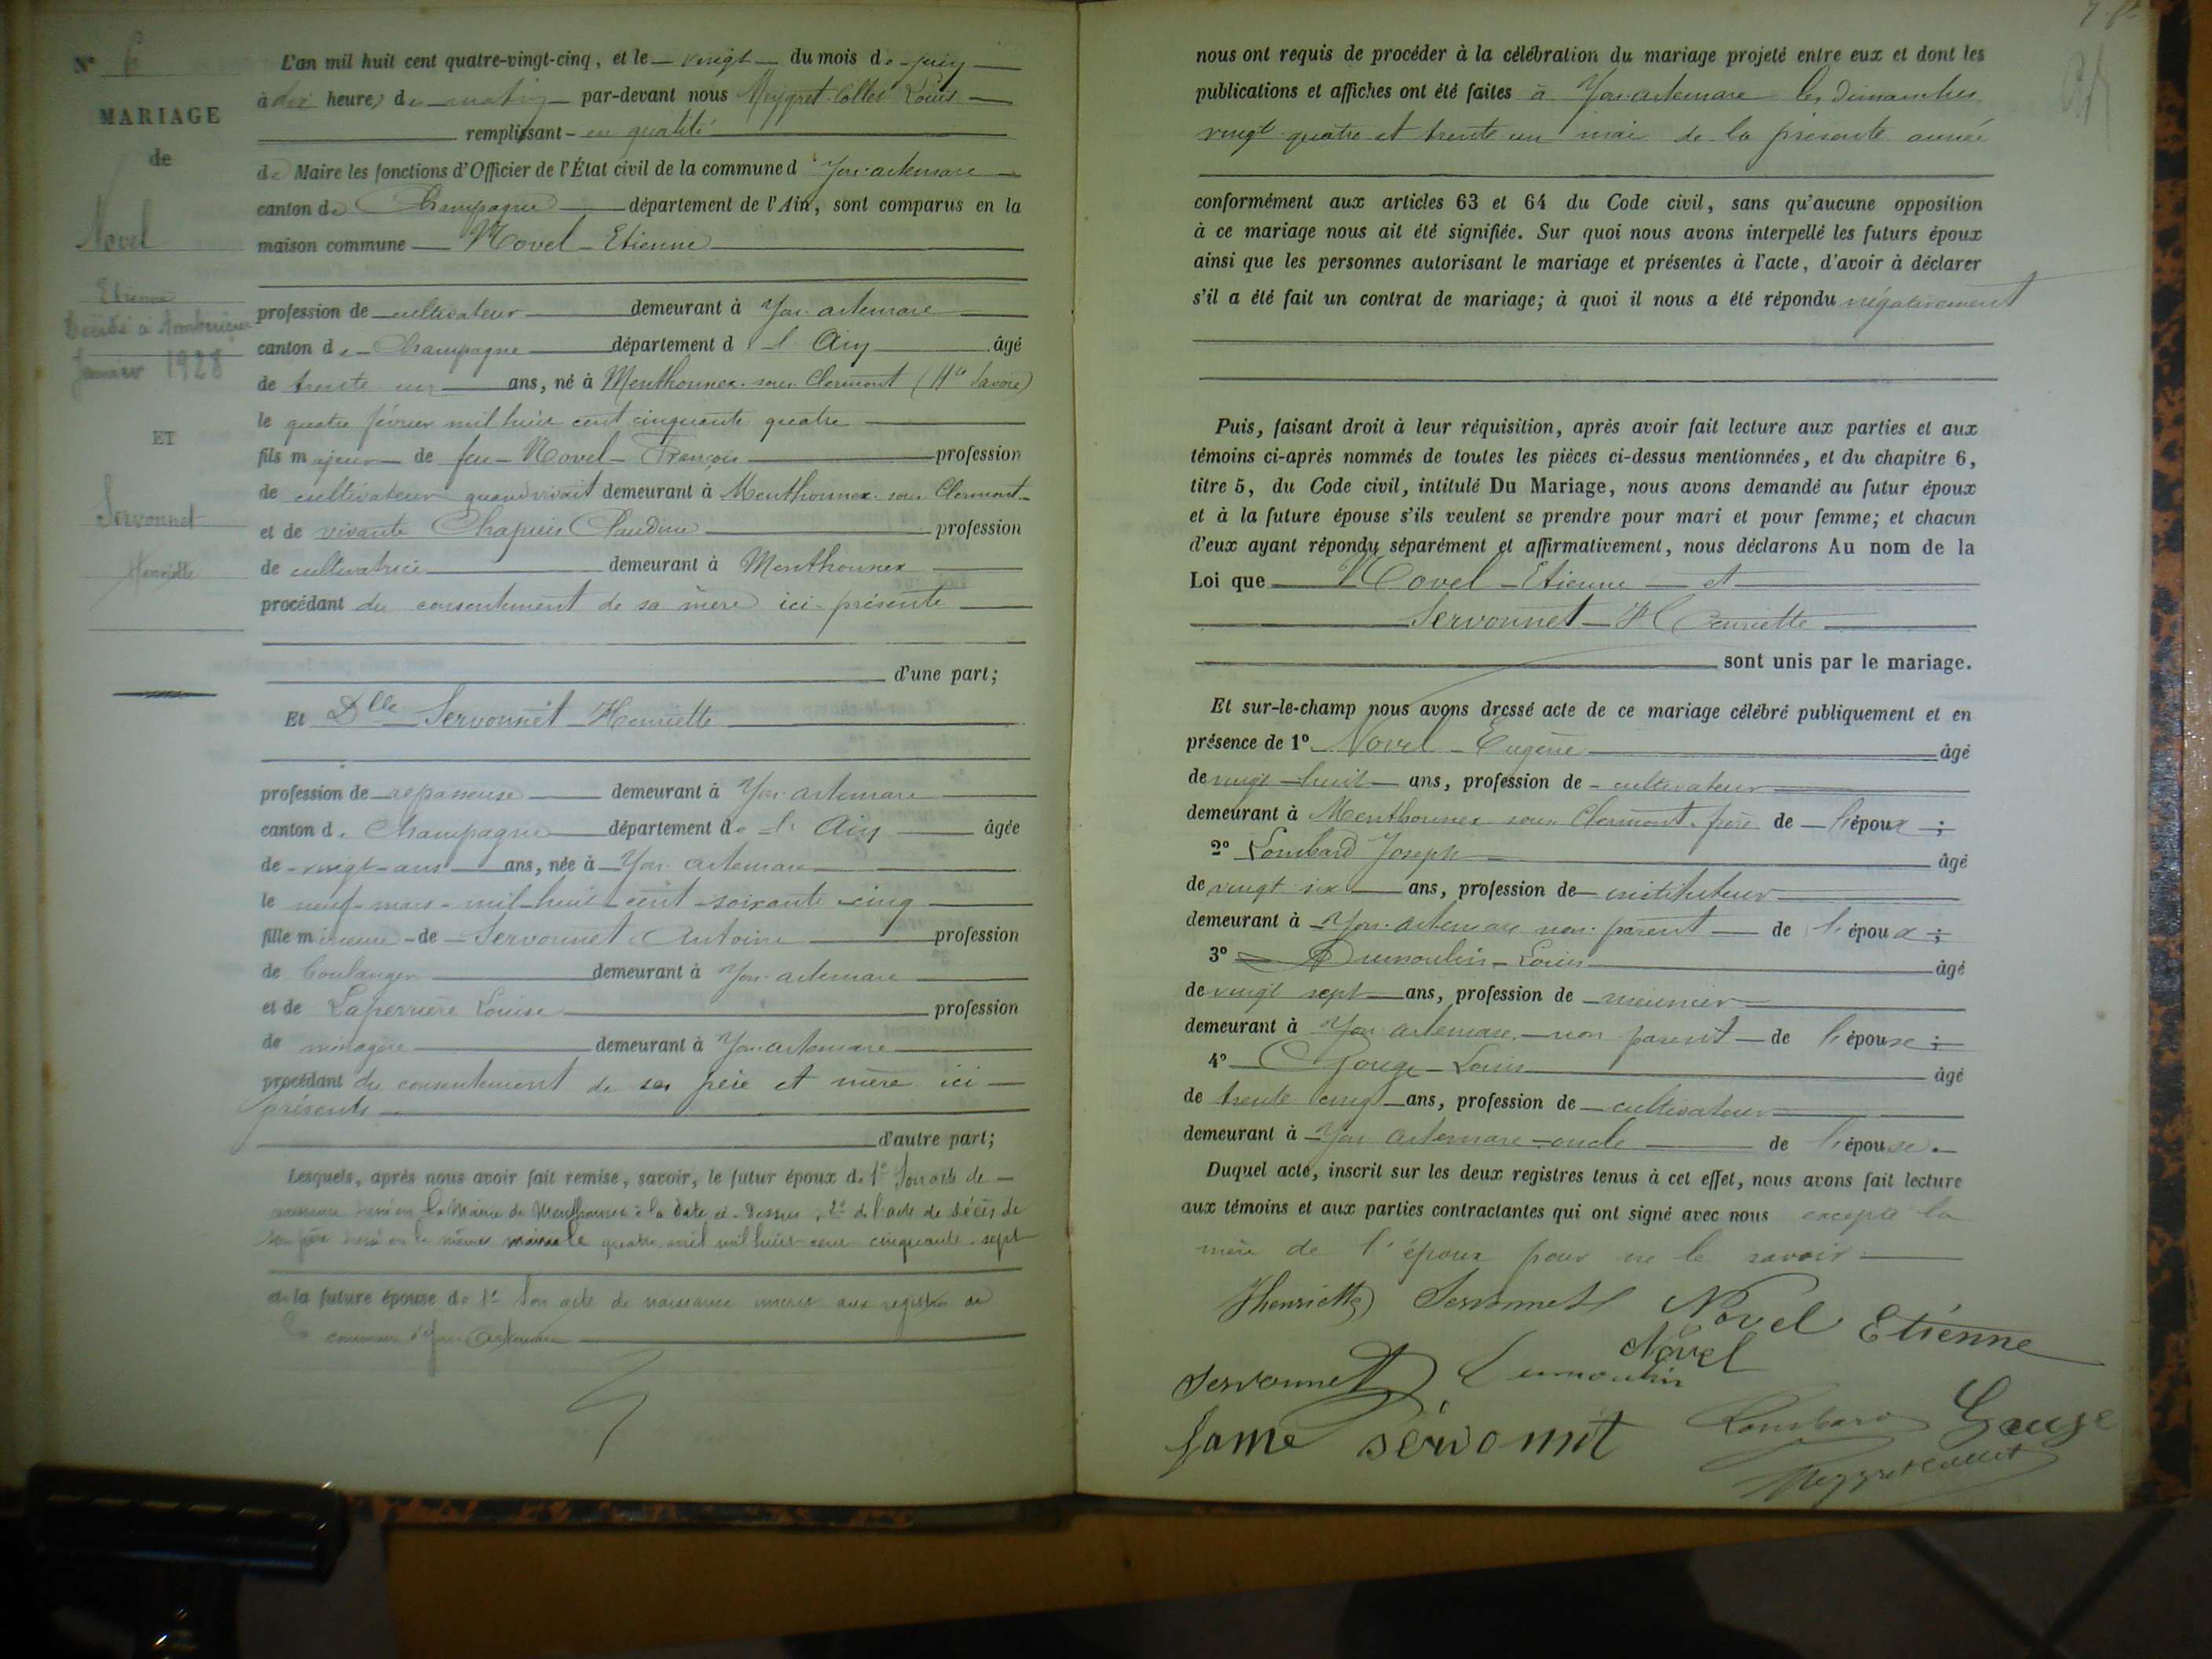 N° 6
MARIAGE
de
Novel
Etienne
Décédé à
Janvier 1928
ET
Servonnet
Henriette
L'an mil huit cent quatre-vingt-cinq, et le vingt du mois de juin
à dix heures du matin par-devant nous Meygret-Collet Louis
remplissant en qualité
de Maire les fonctions d'Officier de l'État civil de la commune d'Yon-artemare
canton de Champagne département de l'Ain, sont comparus en la
maison commune Novel Etienne
profession de cultivateur demeurant à Yon-artemare
canton de Champagne département de l'Ain âgé
de trente un ans, né à Menthonnex-sous-Clermont (Hte Savoie)
le quatre février mil huit cent cinquante quatre
fils majeur de feu Novel François profession
de cultivateur quand vivait demeurant à Menthonnex-sous-Clermont
et de vivante Chapuis Claudine profession
de cultivatrice demeurant à Menthonnex
procédant du consentement de sa mère ici présente
d'une part;
Et Dlle Servonnet Henriette
profession de repasseuse demeurant à Yon-artemare
canton de Champagne département de l'Ain âgée
de vingt ans ans, née à Yon-artemare
le neuf mars mil huit cent soixante cinq
fille mineure de Servonnet Antoine profession
de boulanger demeurant à Yon-artemare
et de Laperrière Louise profession
de ménagère demeurant à Yon-artemare
procédant du consentement de ses père et mère ici
présents
d'autre part;
Lesquels, après nous avoir fait remise, savoir, le futur époux de 1° Son acte de
naissance dressé en la Mairie de Menthonnex à la date ci-dessus, 2° de l'acte de décès de
son père dressé en la même mairie le quatre avril mil huit cent cinquante-sept
et la future épouse de 1° Son acte de naissance inscrit aux registres de
la commune d'Yon-Artemare
nous ont requis de procéder à la célébration du mariage projeté entre eux et dont les
publications et affiches ont été faites à Yon-artemare les dimanches
vingt quatre et trente un mai de la présente année
conformément aux articles 63 et 64 du Code civil, sans qu'aucune opposition
à ce mariage nous ait été signifiée. Sur quoi nous avons interpellé les futurs époux
ainsi que les personnes autorisant le mariage et présentes à l'acte, d'avoir à déclarer
s'il a été fait un contrat de mariage; à quoi il nous a été répondu négativement
Puis, faisant droit à leur réquisition, après avoir fait lecture aux parties et aux
témoins ci-après nommés de toutes les pièces ci-dessus mentionnées, et du chapitre 6,
titre 5, du Code civil, intitulé Du Mariage, nous avons demandé au futur époux
et à la future épouse s'ils veulent se prendre pour mari et pour femme; et chacun
d'eux ayant répondu séparément et affirmativement, nous déclarons Au nom de la
Loi que Novel Etienne et
Servonnet Henriette
sont unis par le mariage.
Et sur-le-champ nous avons dressé acte de ce mariage célébré publiquement et en
présence de 1° Novel Eugène âgé
de vingt huit ans, profession de cultivateur
demeurant à Menthonnex sous Clermont frère de l'époux;
2° Lombard Joseph âgé
de vingt six ans, profession de instituteur
demeurant à Yon-artemare non parent de l'époux;
3° Dumoulin Louis âgé
de vingt sept ans, profession de meunier
demeurant à Yon-artemare non parent de l'épouse;
4° Gouge Louis âgé
de trente cinq ans, profession de cultivateur
demeurant à Yon-Artemare oncle de l'épouse.
Duquel acte, inscrit sur les deux registres tenus à cet effet, nous avons fait lecture
aux témoins et aux parties contractantes qui ont signé avec nous excepté la
mère de l'époux pour ne le savoir
Henriette Servonnet Novel Etienne
Novel
Servonnet Dumoulin
fame sérvonnit Lombard Gouge
Meygret Collet